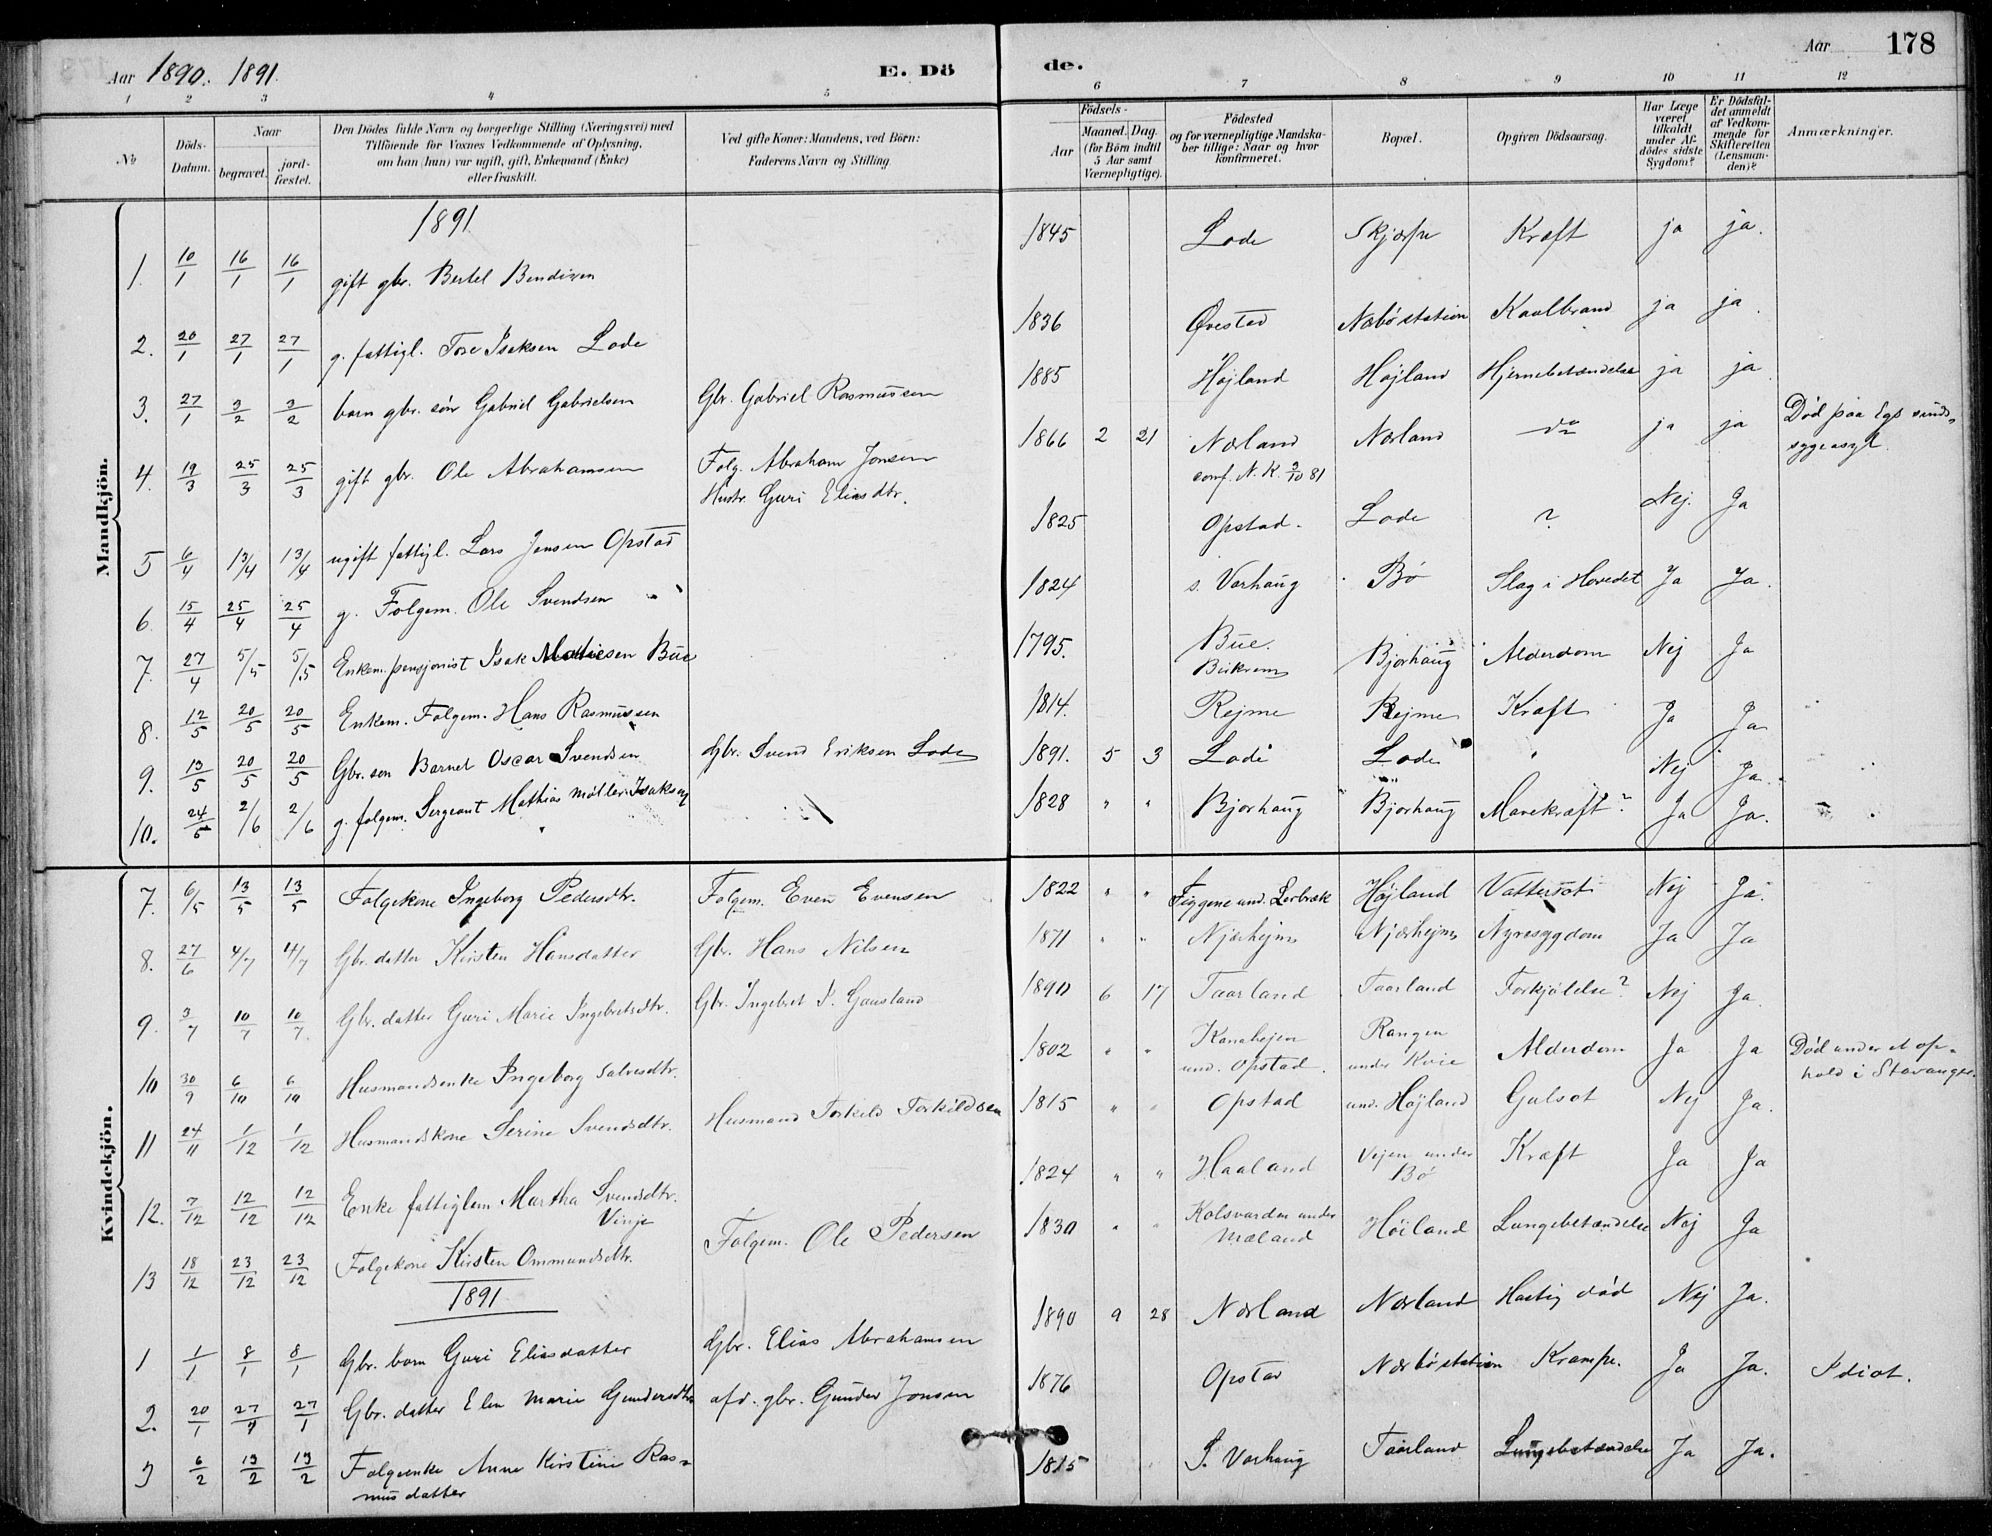 Aar 1890. 1891.
E. Dö de.
Aar 178
1 2 3 4 5 6 7 8 9 10 11 12
No
Döds-Datum.
Naar begravet. jordfæstet.
Den Dödes fulde Navn og borgerlige Stilling (Næringsvei) med Tilföiende for Voxnes Vedkommende af Oplysning, om han (hun) var ugift, gift, Enkemand (Enke) eller fraskilt.
Ved gifte Koner: Mandens, ved Börn: Faderens Navn og Stilling.
Födsels-
Aar Maaned. Dag. (for Börn indtil 5 Aar samt Værnepligtige).
Födested og for værnepligtige Mandskaber tillige: Naar og hvor konfirmeret.
Bopæl.
Opgiven Dödsaarsag.
Har Læge været tilkaldt under Afdödes sidste Sygdom?
Er Dödsfaldet anmeldt af Vedkommende for Skifteretten (Lensmanden)?
Anmærkninger.
Mandkjön.
1891
1. 10/1 16/1 16/1 gift gbr. Bertel Bendixen 1845 Lode Skjærpe Kræft ja ja.
2. 20/1 27/1 27/1 g. fattigl. Tore Isaksen Lode 1836 Øvestad Nærbøstation Kaalbrand ja ja.
3. 27/1 3/2 3/2 barn gbr. søn Gabriel Gabrielsen Gbr. Gabriel Rasmussen 1885 Højland Højland Hjernebetændelse ja ja
4. 19/3 25/3 25/3 gift gbr. Ole Abrahamsen Folg. Abraham Jonsen 1866 2 21 Nærland Nærland do ja ja Død paa Egs sinds-
Hustr. Guri Eliasdtr. conf. N. K. 2/10 81 sygeasyl.
5 6/4 13/4 13/4 ugift fattigl. Lars Jensen Opstad 1825 Opstad. Lode ? Nej. Ja
6. 15/4 25/4 25/4 g. Folgem. Ole Svendsen 1824 s. Varhaug Bø Slag i Hovedet Ja Ja.
7. 27/4 5/5 5/5 Enkem. pensjonist Isak Mathiesen Bue 1795. Bue. Bjorhaug Alderdom Nej Ja
Birkrem
8. 12/5 20/5 20/5 Enkem. Folgem. Hans Rasmussen 1814. Rejme Rejme Kræft Ja Ja
9. 13/5 20/5 20/5 Gbr. søn Barnet Oscar Svendsen Gbr. Svend Eriksen Lode 1891. 5 3 Lode Lode " Nej Ja.
10. 24/5 2/6 2/6 g. folgem. Sergeant Mathias Møller Isaksen 1828 " " Bjorhaug Bjorhaug Mavekræft? Ja Ja.
Kvindekjön.
7. 6/5 13/5 13/5 Folgekone Ingeborg Pedersdtr. Folgem. Even Evensen 1822 " " Tiggene und. Lerbræk Højland Vattersot Nej Ja.
8. 27/6 4/7 4/7 Gbr. datter Kirsten Hansdatter Gbr. Hans Nilsen 1871 " " Njærhejm Njærhejm Nyresygdom Ja Ja
9. 3/7 10/7 10/7 Gbr. datter Guri Marie Ingebretsdtr. Gbr. Ingebret P. Gausland 1890 6 17 Taarland Taarland Forkjølelse? Nej Ja.
10 30/9 6/10 6/10 Husmandsenke Ingeborg Salvesdtr. 1802 " " Kanahejen Rangen Alderdom Ja Ja Død under et op-
und. Opstad. under Kvie hold i Stavanger.
11 24/11 1/12 1/12 Husmandskone Serine Svendsdtr. Husmand Torkild Torkildsen 1815 " " Opstad und. Højland Gulsot Nej Ja.
12. 7/12 12/12 12/12 Enke fattiglem Martha Svendsdtr. 1824 " " Haaland Vejen under Kræft Ja Ja
Vinje Bø
13 18/12 23/12 23/12 Folgekone Kirsten Ommundsdtr. Folgem. Ole Pedersen 1830 " " Kolsvarden under Høiland Lungebetændelse Nej Ja
Mæland
1891
1 1/1 8/1 8/1 Gbr. barn Guri Eliasdatter Gbr. Elias Abrahamsen 1890 9 28 Nærland Nærland Hastig død Nej Ja.
2. 20/1 27/1 27/1 Gbr. datter Elen Marie Gundersdtr. afd. gbr. Gunder Jonsen 1876 Opstad Nærbøstation Krampe. Ja Ja. Idiot.
3 6/2 13/2 13/2 Folgeenke Anne Kirstine Ras- 1815 S. Varhaug Taarland Lungebetændelse Ja Ja.
musdatter